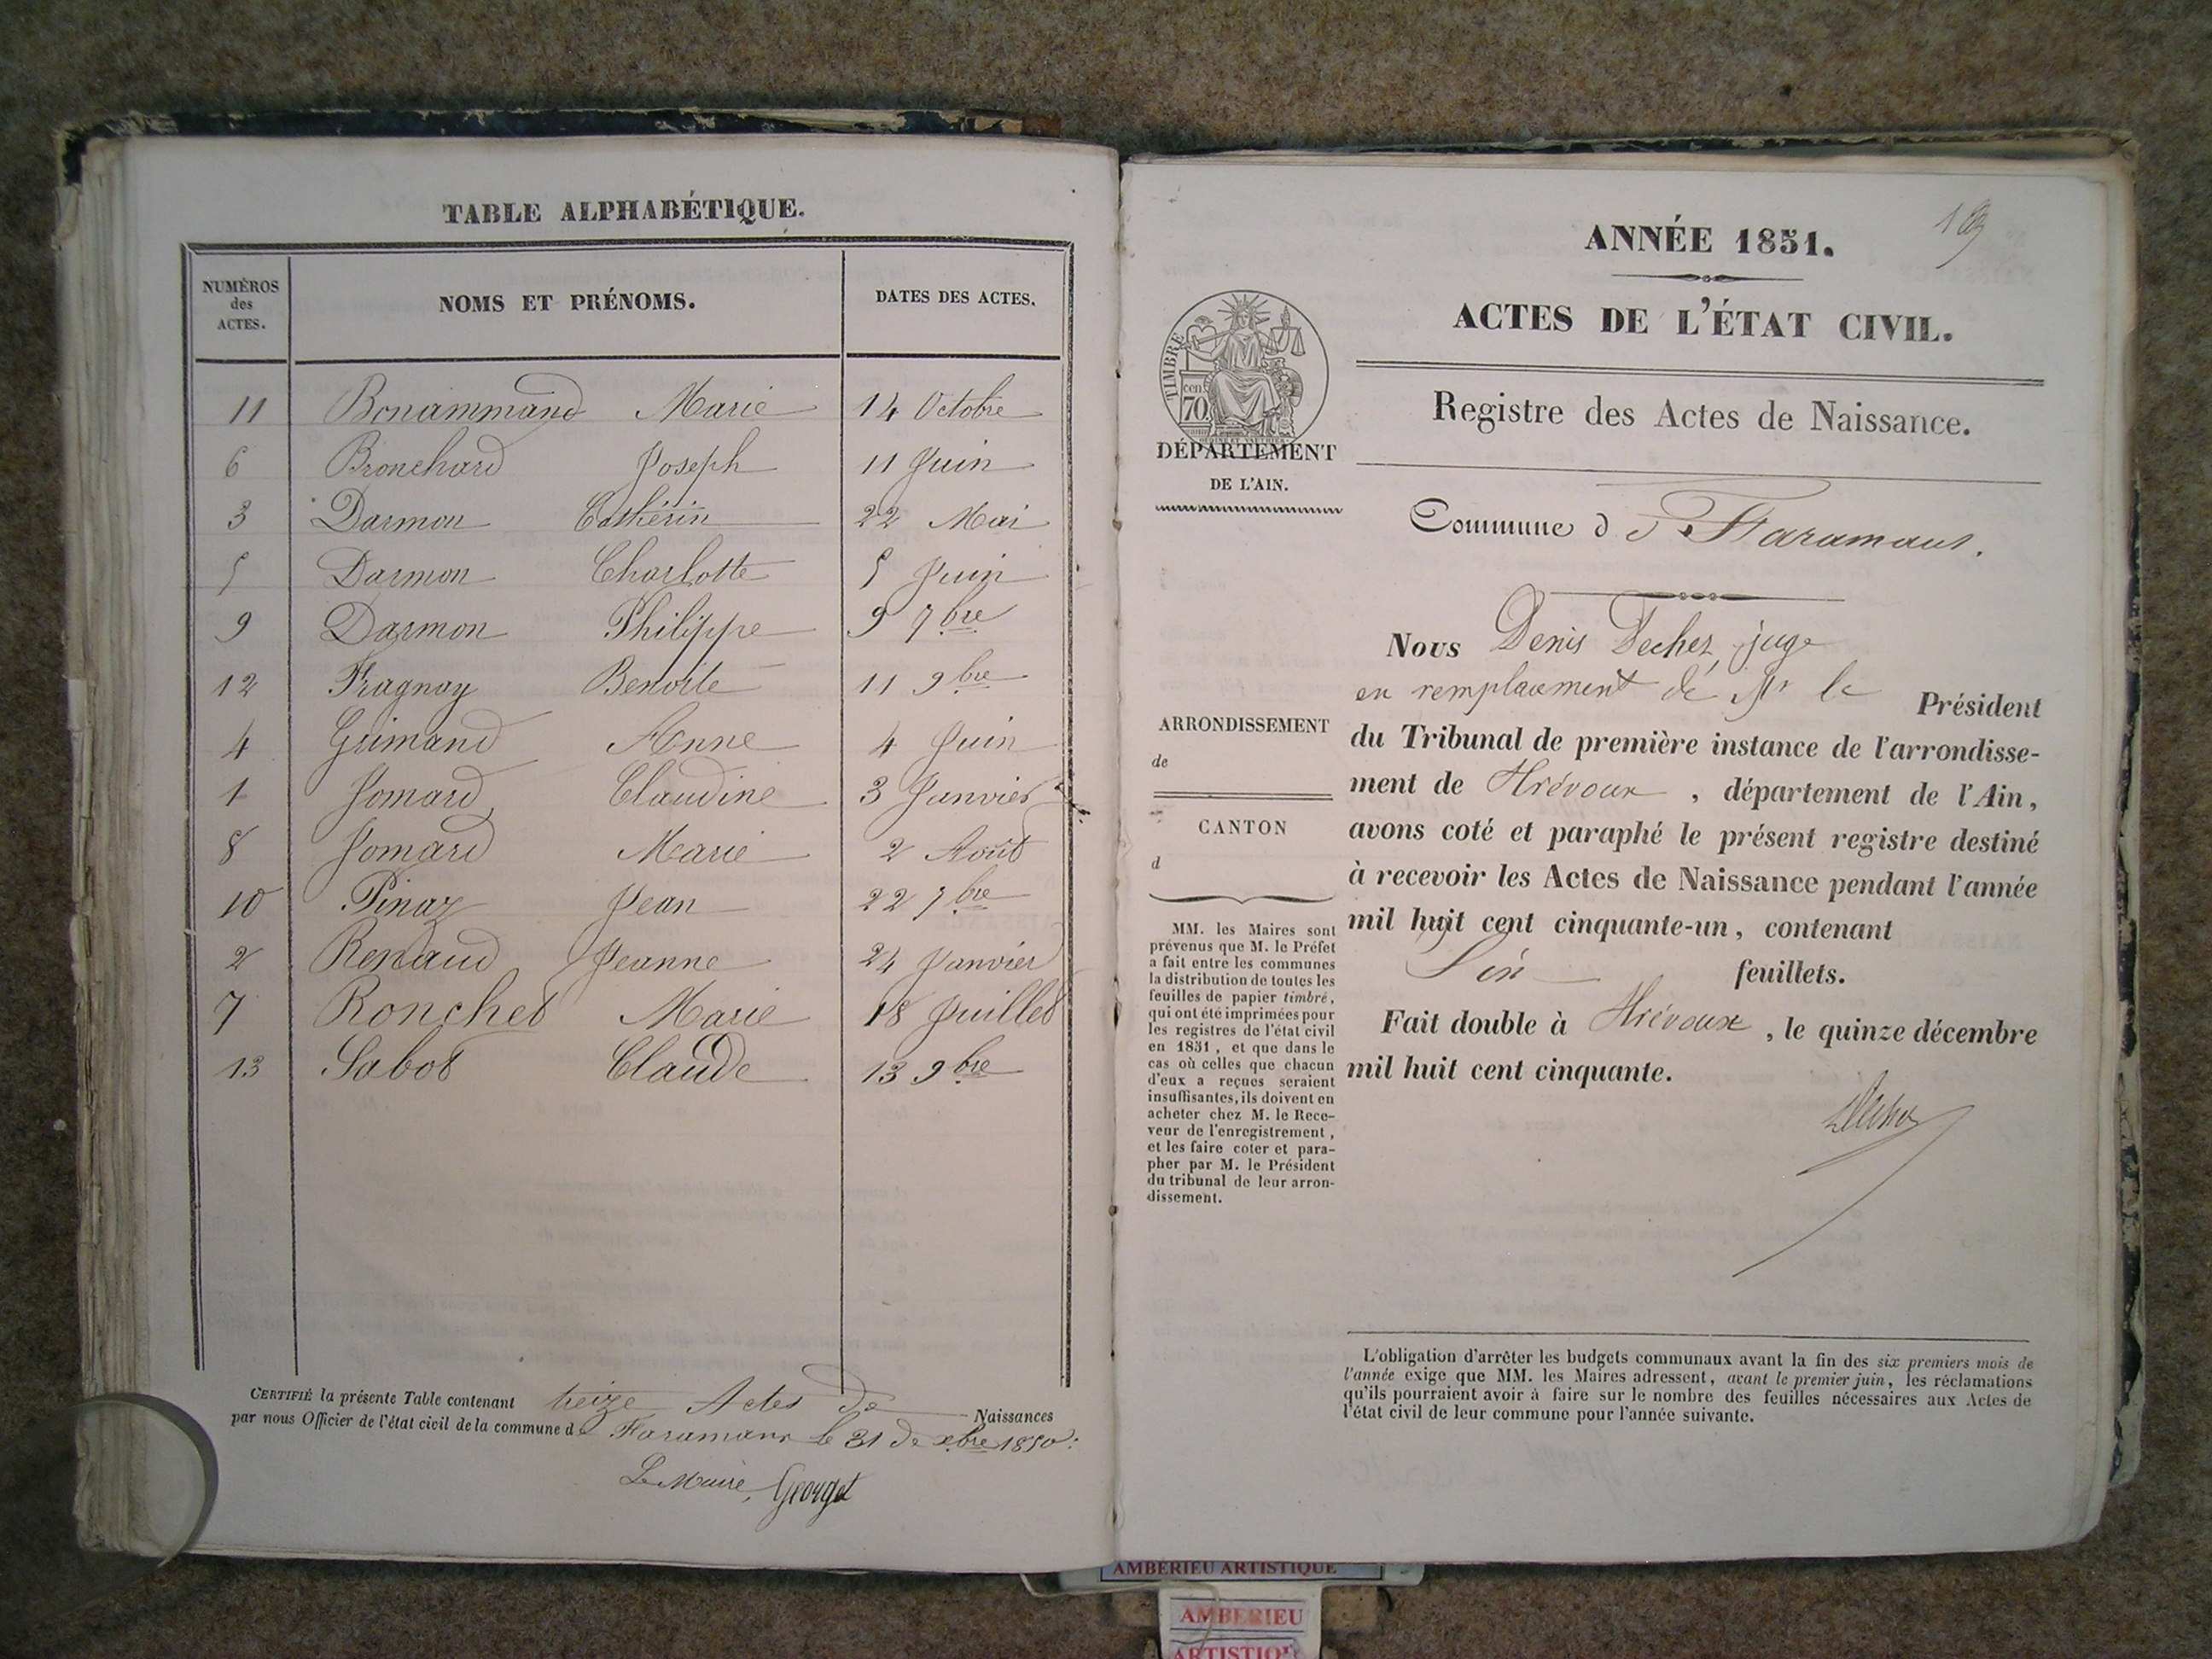 TABLE ALPHABÉTIQUE.
NUMÉROS
des
ACTES.
NOMS ET PRÉNOMS.
DATES DES ACTES.
11 Bonammand Marie 14 Octobre
6 Bronchard Joseph 11 Juin
3 Darmon Cathérin 22 Mai
5 Darmon Charlotte 5 Juin
9 Darmon Philippe 9 7bre
12 Fragnay Benoite 11 9bre
4 Grimand Anne 4 Juin
1 Jomard Claudine 3 Janvier
8 Jomard Marie 2 Août
10 Pinaz Jean 22 7bre
2 Renaud Jeanne 24 Janvier
7 Ronchet Marie 18 Juillet
13 Sabot Claude 13 9bre
CERTIFIÉ la présente Table contenant treize Actes de Naissances
par nous Officier de l'état civil de la commune de Faramans le 31 de xbre 1850.
Le Maire, Georget
ANNÉE 1851.
ACTES DE L'ÉTAT CIVIL.
TIMBRE
cen.
70
DÉPARTEMENT
DE L'AIN.
Registre des Actes de Naissance.
Commune de Faramans.
ARRONDISSEMENT
de
CANTON
d
MM. les Maires sont
prévenus que M. le Préfet
a fait entre les communes
la distribution de toutes les
feuilles de papier timbré,
qui ont été imprimées pour
les registres de l'état civil
en 1851, et que dans le
cas où celles que chacun
d'eux a reçues seraient
insuffisantes, ils doivent en
acheter chez M. le Rece-
veur de l'enregistrement,
et les faire coter et para-
pher par M. le Président
du tribunal de leur arron-
dissement.
Nous Denis juge
en remplacement de Mr le Président
du Tribunal de première instance de l'arrondisse-
ment de Trévoux, département de l'Ain,
avons coté et paraphé le présent registre destiné
à recevoir les Actes de Naissance pendant l'année
mil huit cent cinquante-un, contenant
feuillets.
Fait double à Trévoux, le quinze décembre
mil huit cent cinquante.
L'obligation d'arrêter les budgets communaux avant la fin des six premiers mois de
l'année exige que MM. les Maires adressent, avant le premier juin, les réclamations
qu'ils pourraient avoir à faire sur le nombre des feuilles nécessaires aux Actes de
l'état civil de leur commune pour l'année suivante.
AMBERIEU ARTISTIQUE
AMBERIEU
ARTISTIQUE